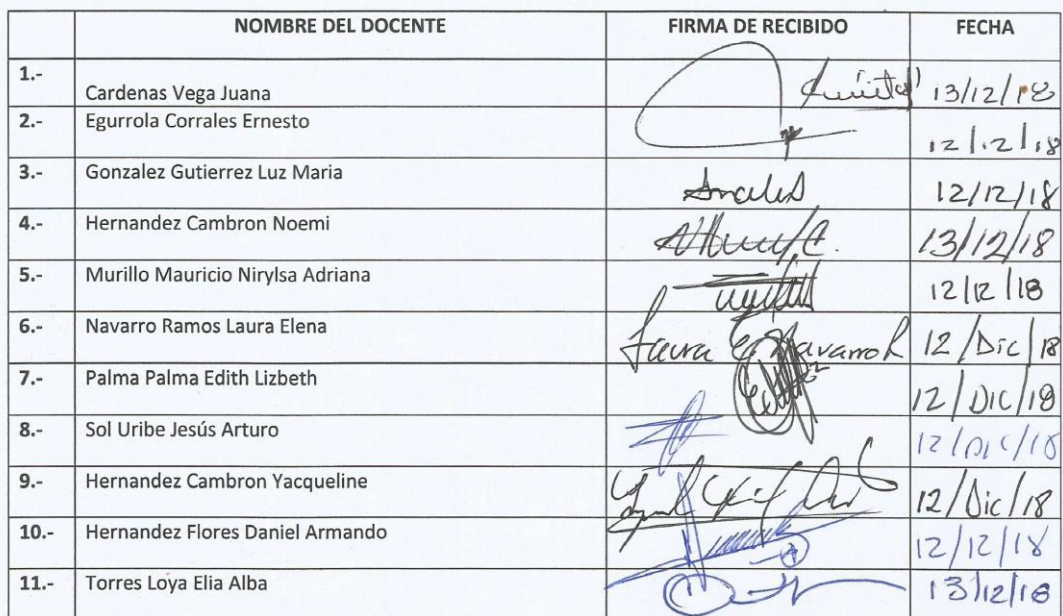 NOMBRE DEL DOCENTE FIRMA DE RECIBIDO FECHA
1.- Cardenas Vega Juana 13/12/18
2.- Egurrola Corrales Ernesto 12/12/18
3.- Gonzalez Gutierrez Luz Maria 12/12/18
4.- Hernandez Cambron Noemi 13/12/18
5.- Murillo Mauricio Nirylsa Adriana 12/12/18
6.- Navarro Ramos Laura Elena Laura E Navarro R 12/Dic/18
7.- Palma Palma Edith Lizbeth 12/DIC/18
8.- Sol Uribe Jesús Arturo 12/DIC/18
9.- Hernandez Cambron Yacqueline 12/Dic/18
10.- Hernandez Flores Daniel Armando 12/12/18
11.- Torres Loya Elia Alba 13/12/18